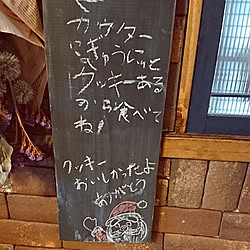 カウター
にぎゅうにゅと
クッキーある
から食べて
ね!
クッキー
おいしかったよ
ありがとう